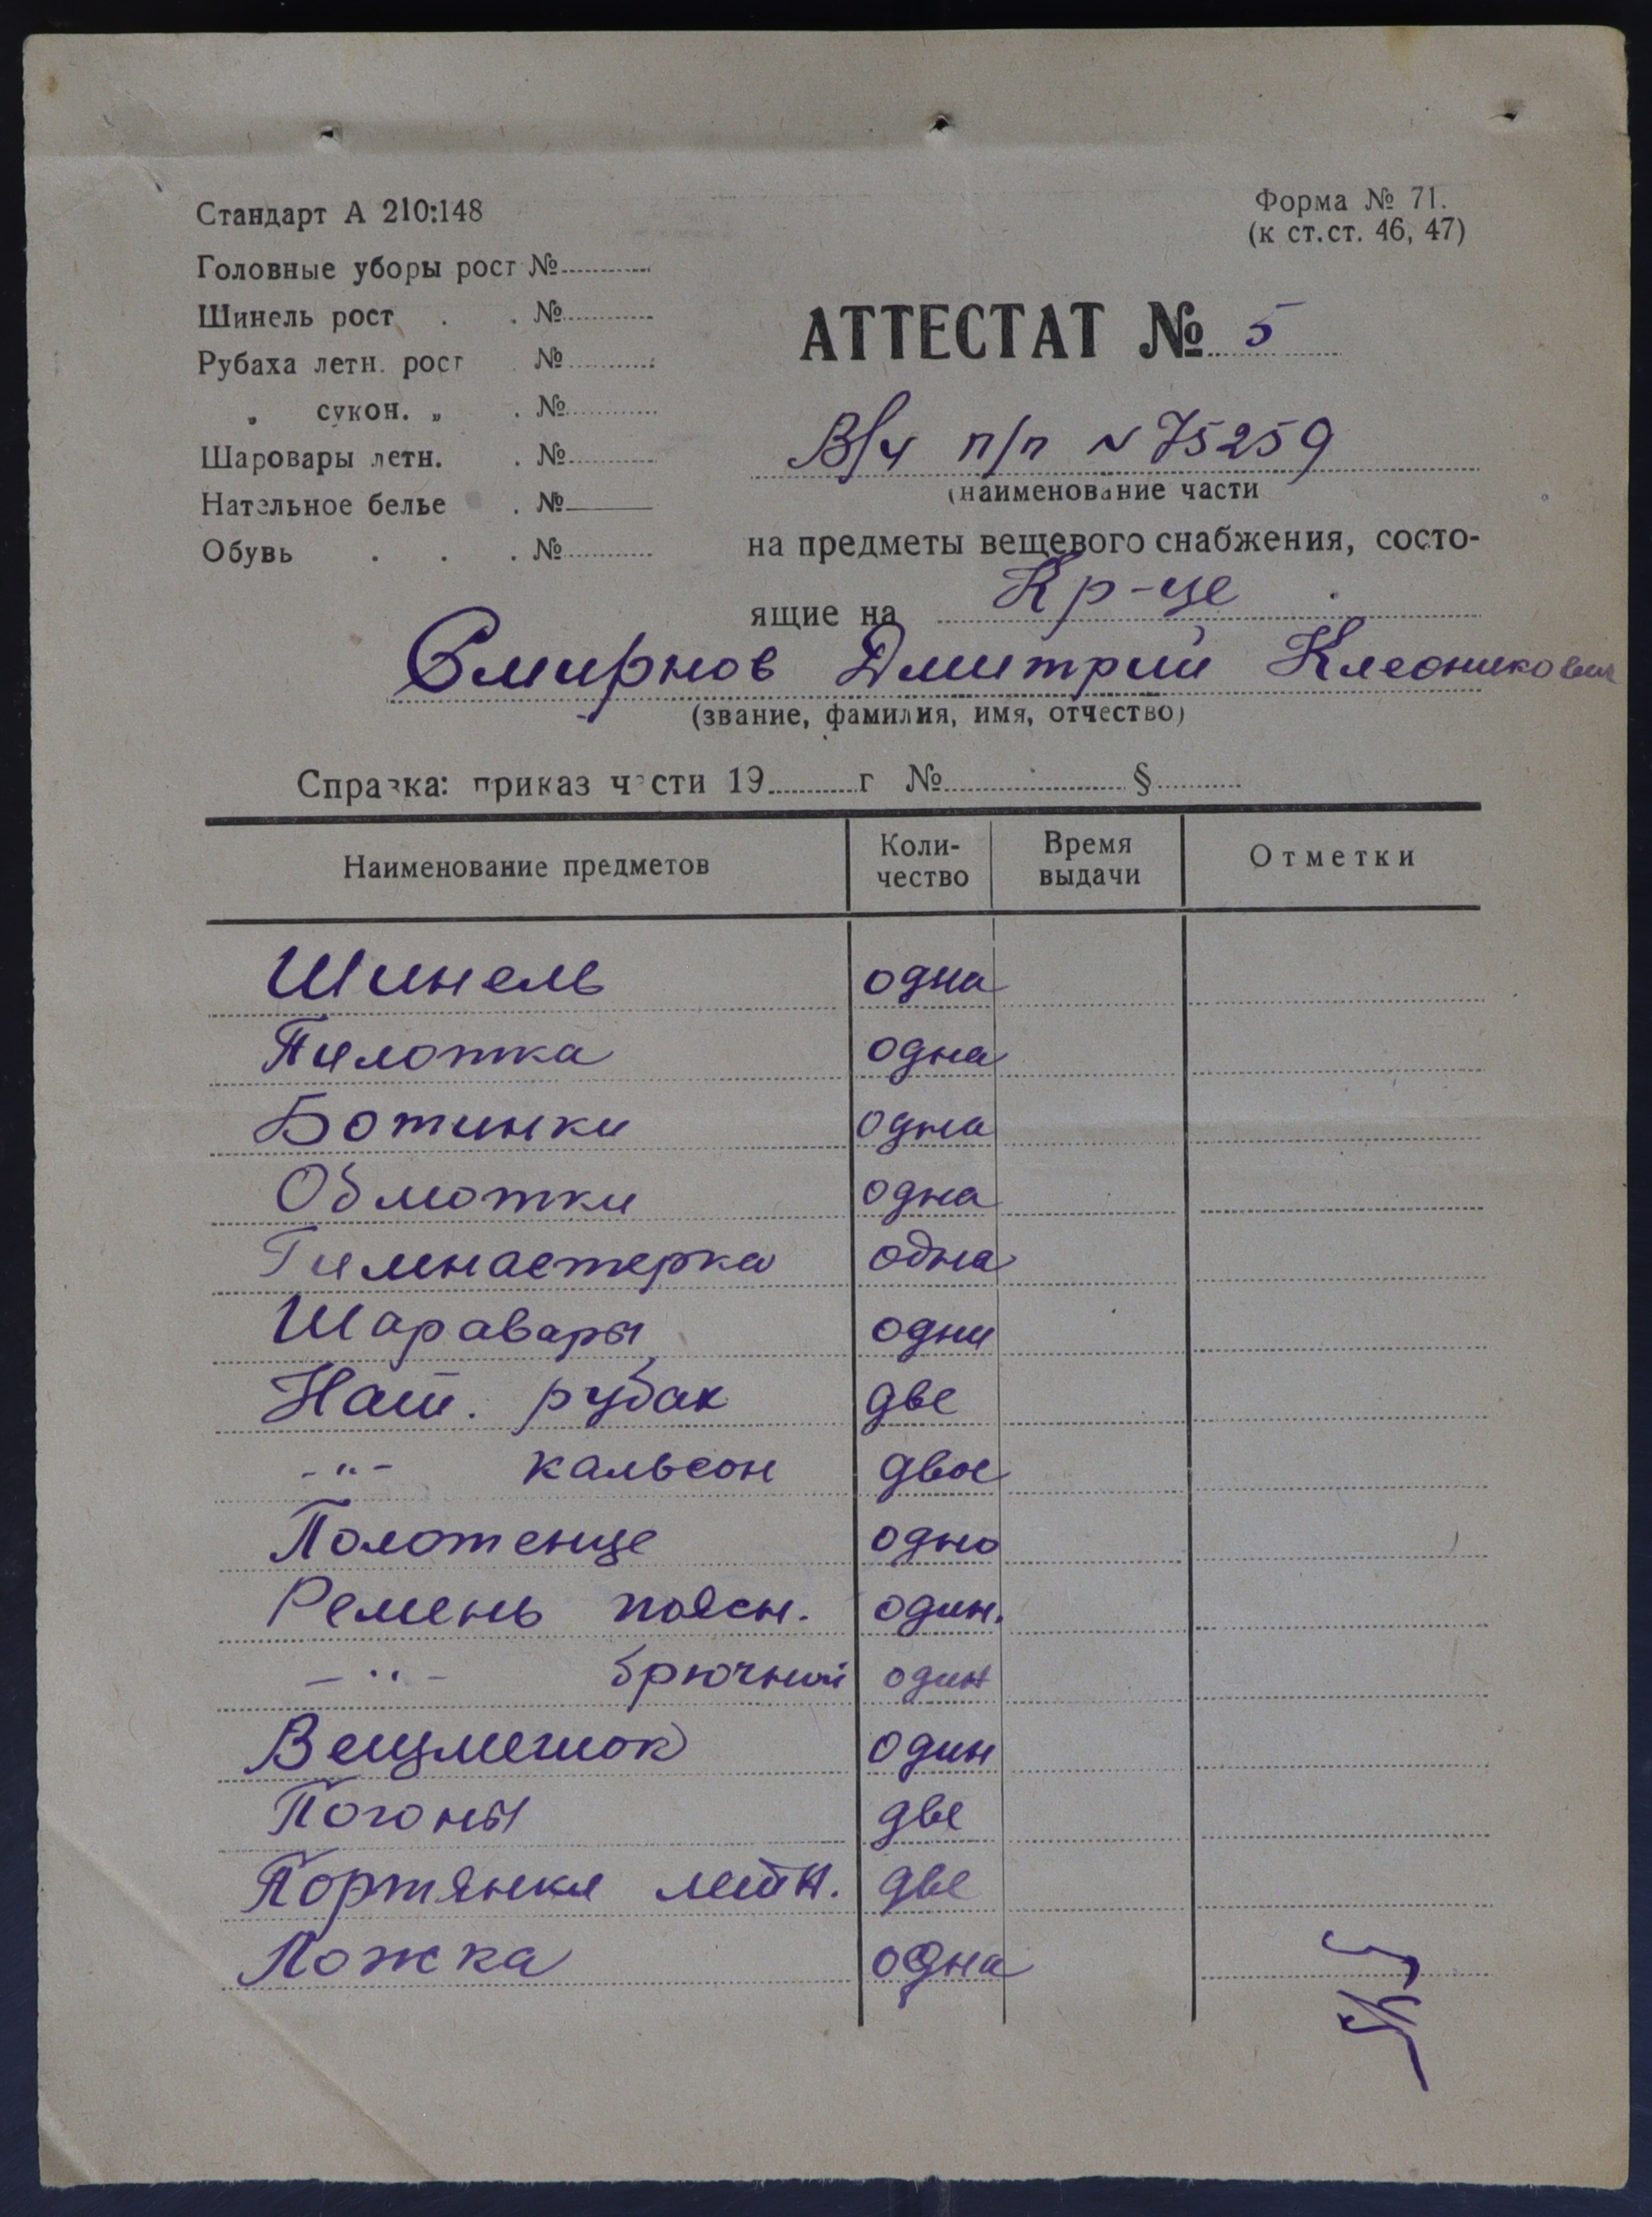 Стандарт А 210:148
Форма № 71.
(к ст.ст. 46, 47)
Головные уборы рост №
Шинель рост . . №
Рубаха летн. рост . №
„ сукон. „ . №
Шаровары летн. . №
Нательное белье . №
Обувь . . . №
АТТЕСТАТ № 5
В/ч п/п № 75259
(наименование части
на предметы вещевого снабжения, состо-
ящие на Кр-це
Смирнов Дмитрий Клеоникович
(звание, фамилия, имя, отчество)
Справка: приказ части 19 г № §
Наименование предметов Коли-чество Время выдачи Отметки
Шинель одна
Пилотка одна
Ботинки одна
Обмотки одна
Гимнастерка одна
Шаравары одни
Нат. рубах две
-"- кальсон двое
Полотенце одно
Ремень поясн. один.
-"- брючний один
Вещмешок один
Погоны две
Портянки летн. две
Ложка одна